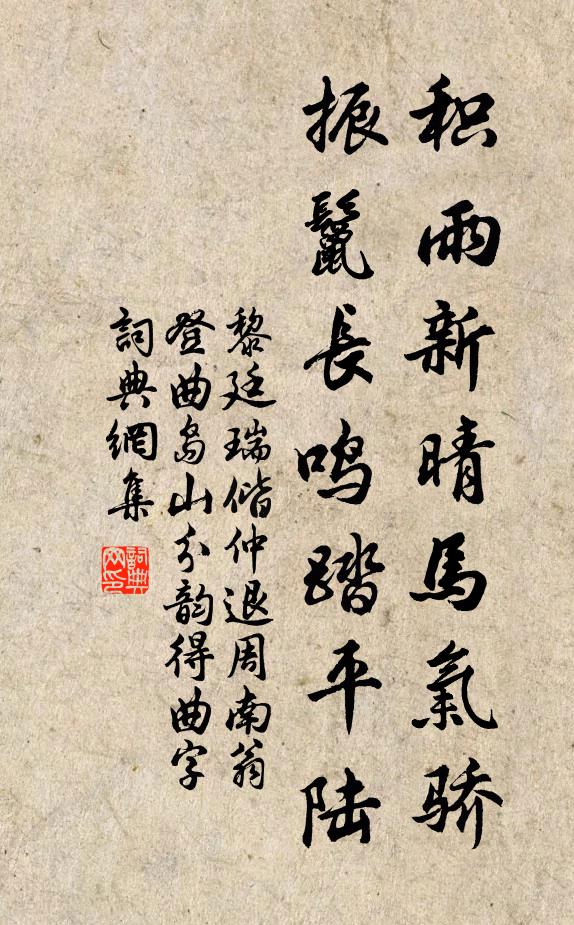 积雨新晴馬氣骄
振鬣長鸣踏平陆
黎廷瑞偕仲退周南翁
登曲岛山分韵得曲字
詞典網集
詞典网印